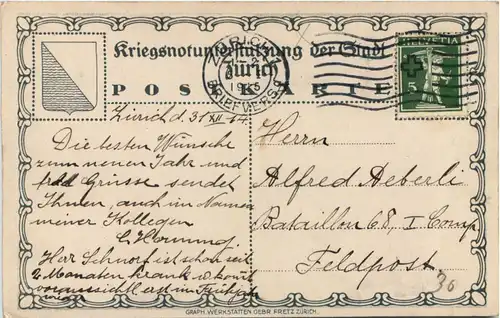 Kriegsnotunterstützung der Stadt
Zürich
POSTKARTE
ZÜRICH
BRIEFVERS.
HELVETIA
5
Zürich d. 31 XII 14
Die besten Wünsche
zum neuen Jahr und
Grüsse sendet
Ihnen, auch im Namen
meiner Kollegen
Hornung.
Herr Schnorf ist schon seit
2 Monaten krank u. kommt
voraussichtl. erst im Frühjahr
wieder
Herrn
Alfred Aeberli
Bataillon 68, I Comp.
Feldpost
30
GRAPH. WERKSTÄTTEN GEBR. FRETZ ZÜRICH.